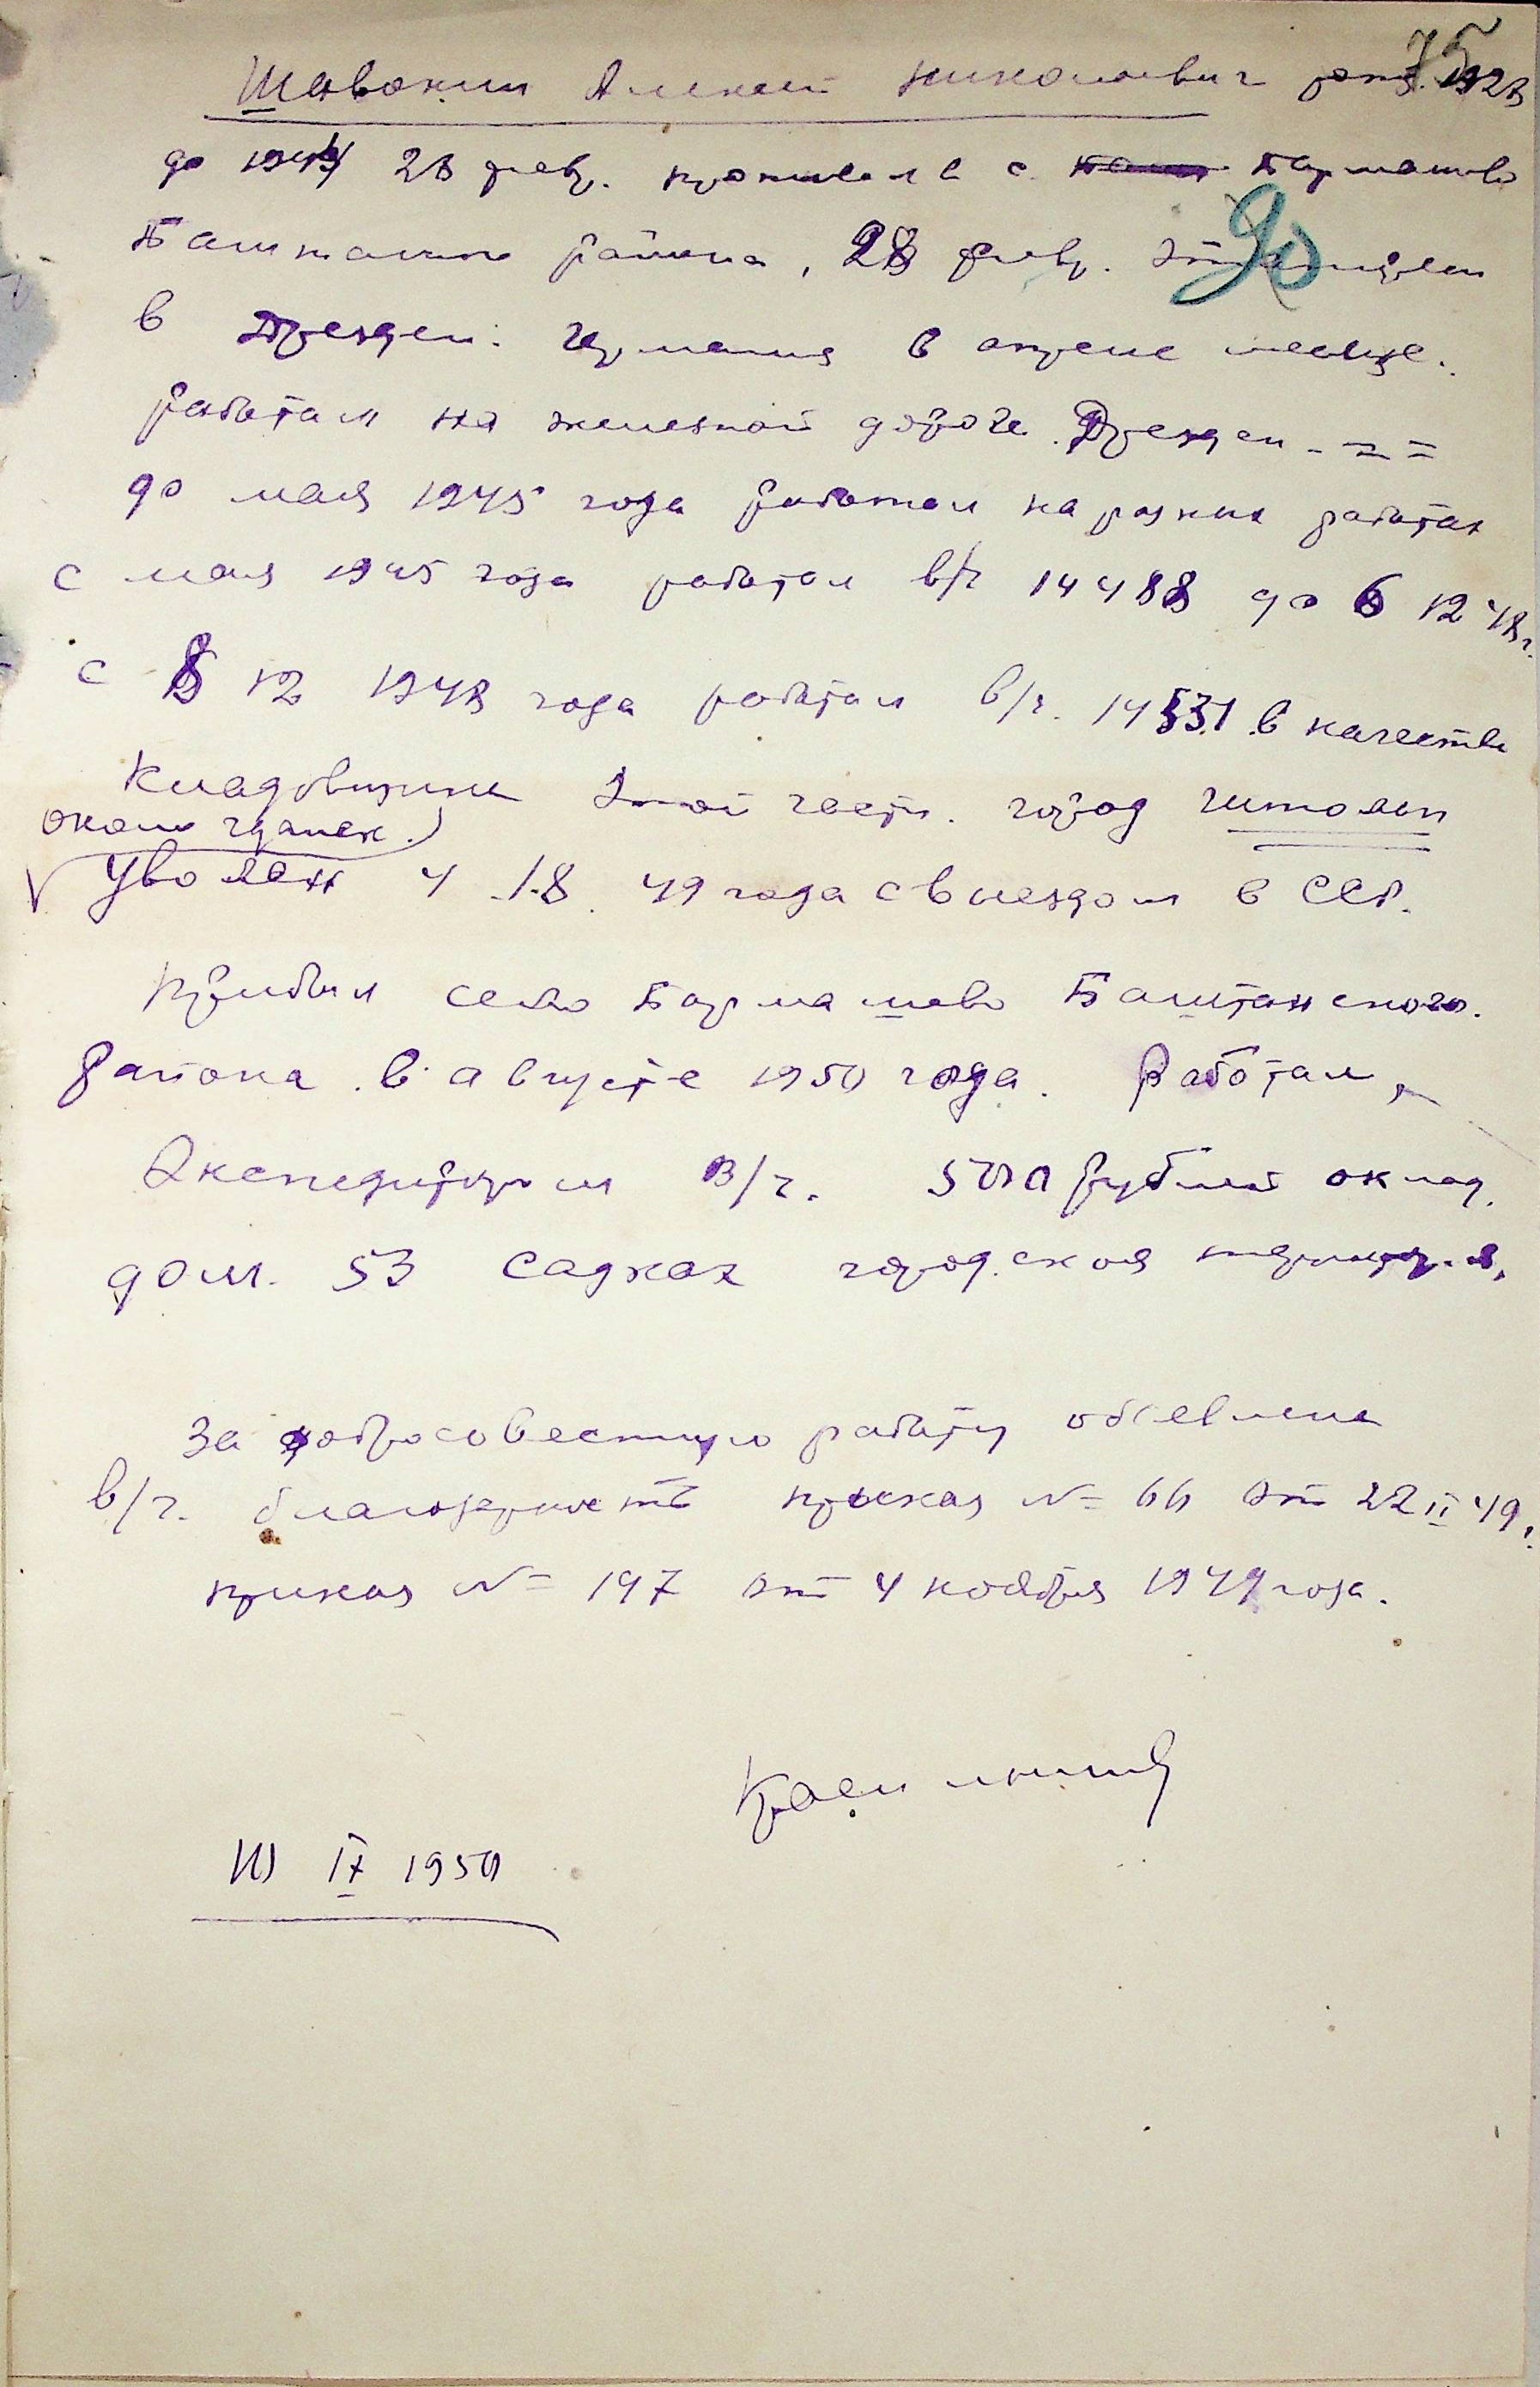 75
Шавокин Алексей Николаевич рожд. 1923
до 1944 28 февр. проживал в с. Бармашово
90
Баштанского района, 28 февр.
в Дрезден. Германия в апреле месяце.
работал на железной дороге Дрезден
до мая 1945 года работал на разных работах
с мая 1945 года работал в/ч 14488 до 6 12 48 г.
с 8 12 1948 года работал в/ч. 14531 в качестве
Кладовщика этой части. город
около гданск.)
Уволен 4 18 49 года с выездом в ССР.
Прибыл село Бармашово Баштанского.
района в августе 1950 года. Работал,
Экспедитором в/ч. 500 рублей оклад.
дом. 53 садках городская
за добросовестную работу объявлена
в/ч. благодарность приказ № 66 от 22 II 49 г.
приказ № 197 от 4 ноября 1949 года.
IX 1950